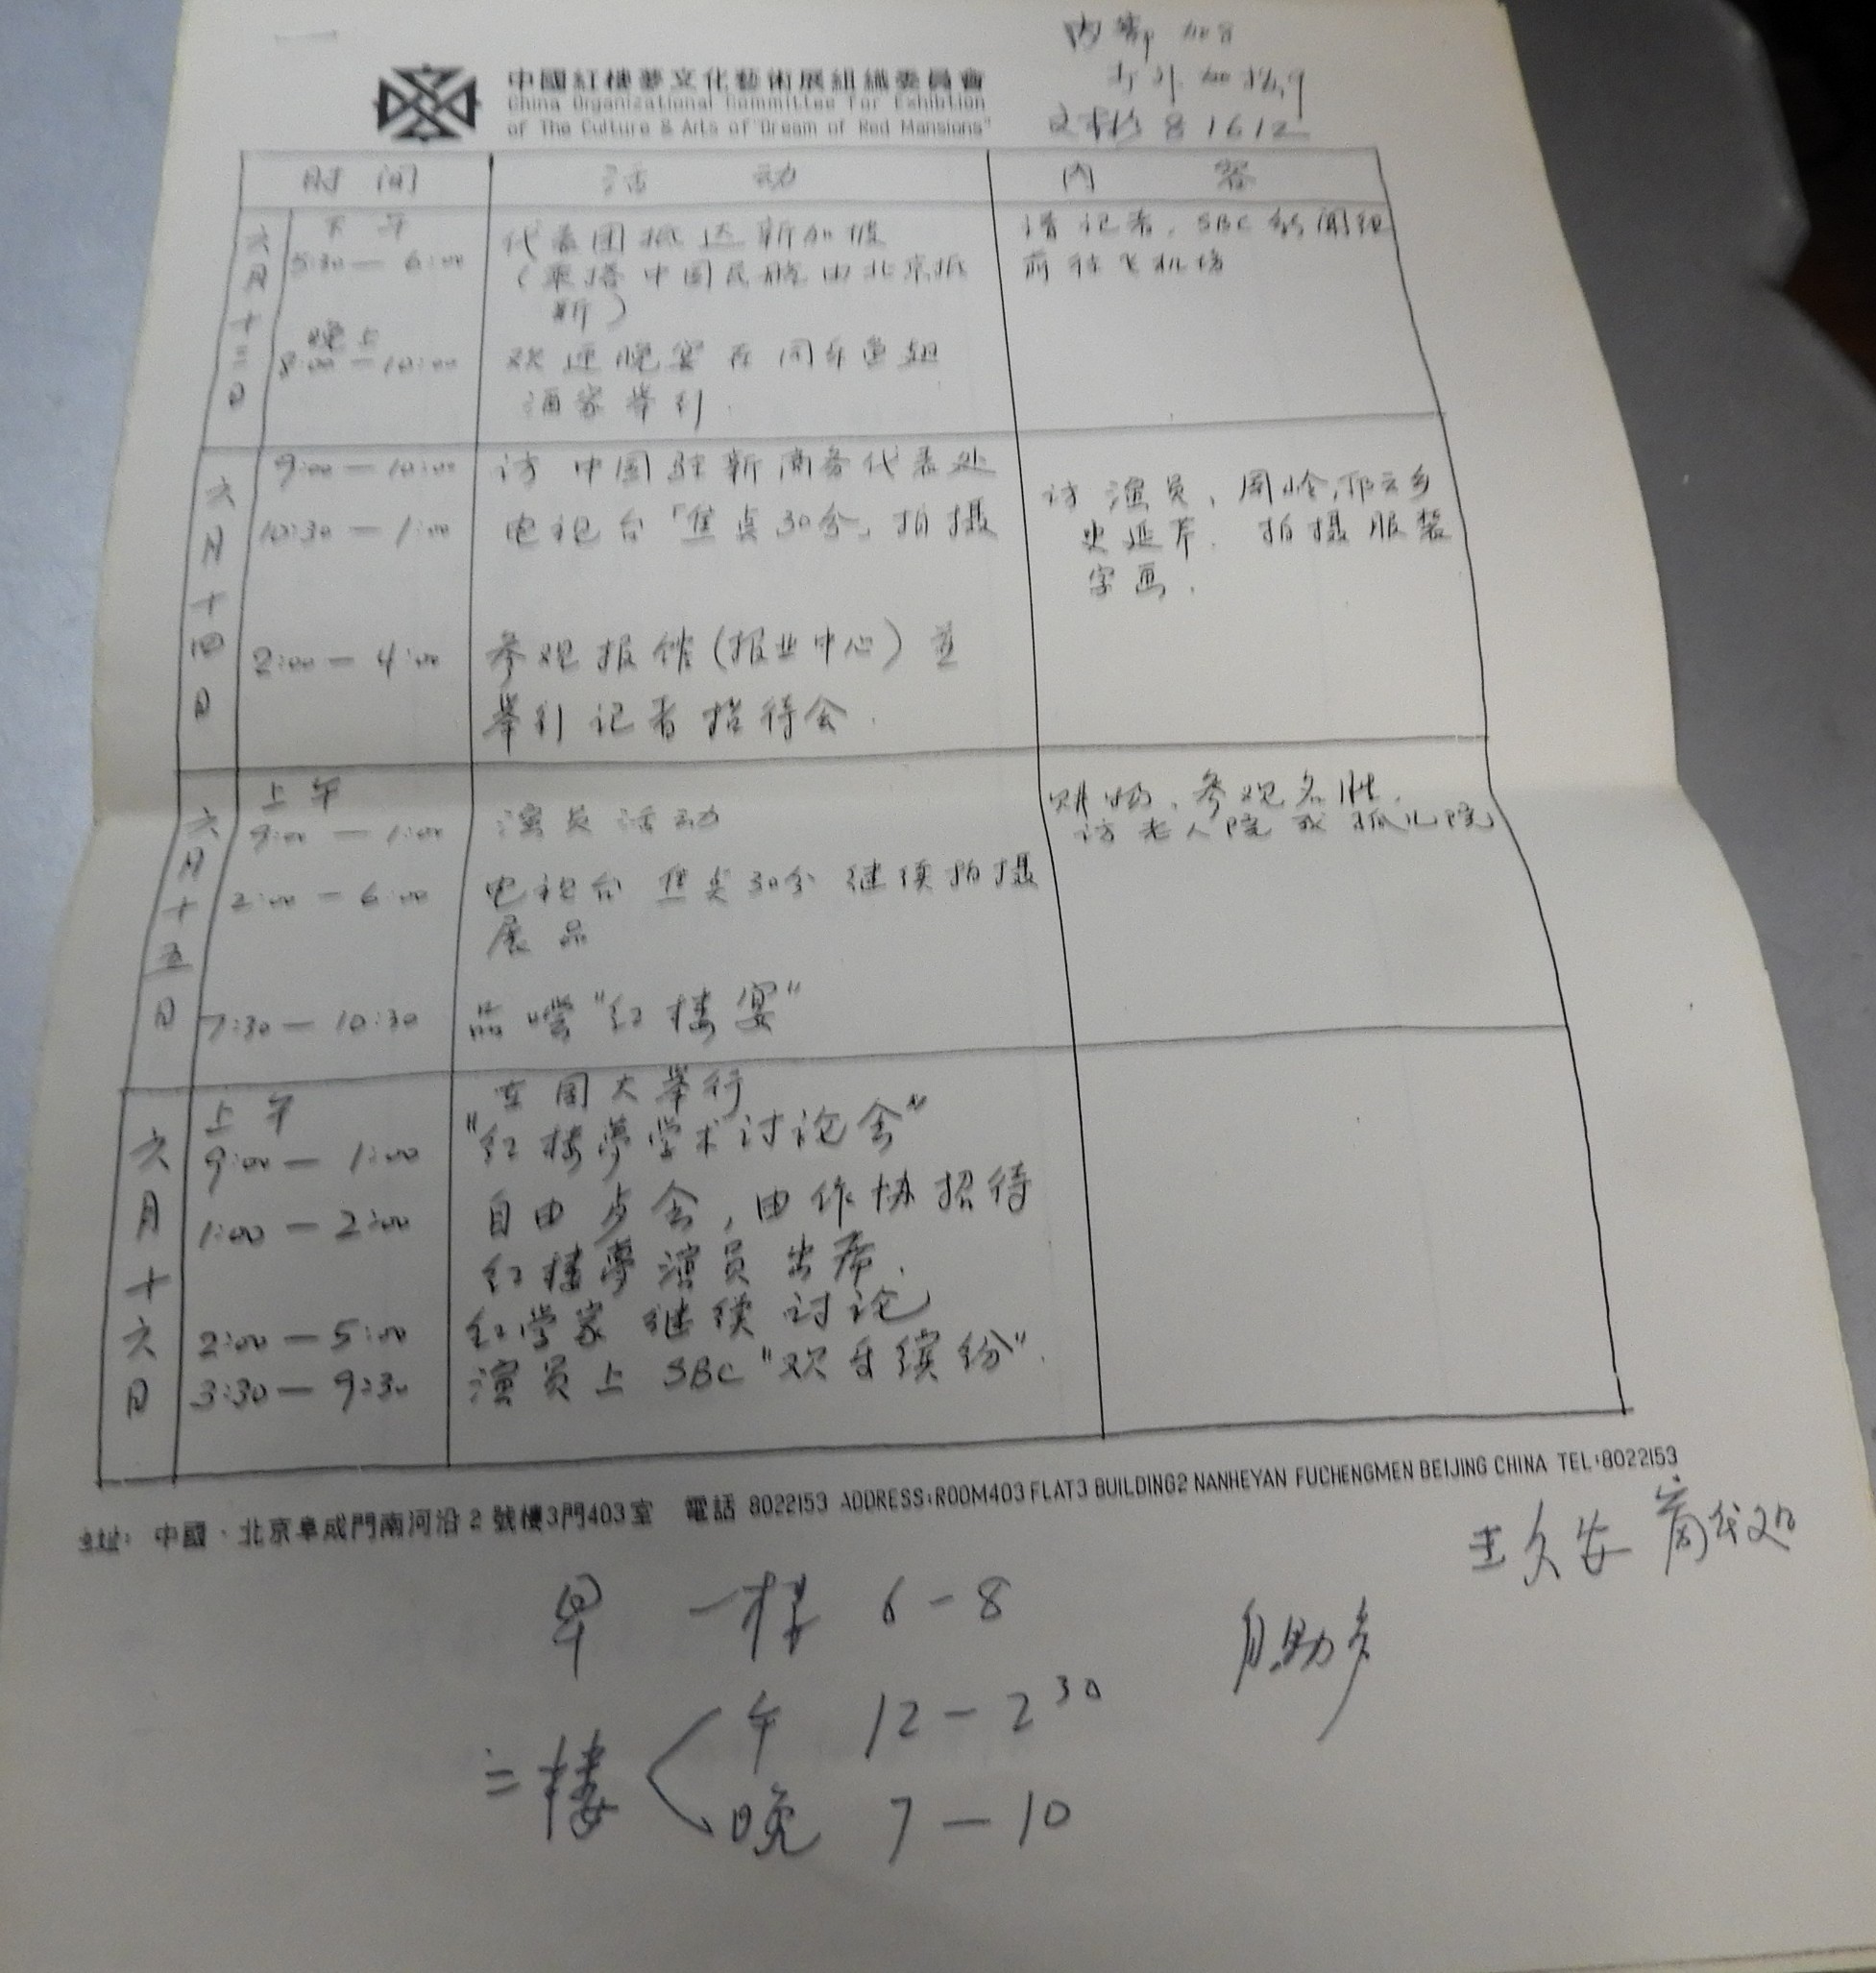 中國紅樓夢文化藝術展組織委員會
China Organizational Committee For Exhibtion
of The Culture & Arts of "Dream of Red Mansions"
内部
81612
时间 活动 内容
六月十三日
下午
5:30 — 6:00 代表团抵达新加坡
(乘搭中国民航由北京抵
新)
请记者, SBC 新闻组
前往飞机场
晚上
8:00 — 10:00 欢迎晚宴在同乐鱼翅
酒家举行.
六月十四日
9:00 — 10:00 访中国驻新商务代表处
10:30 — 1:00 电视台「焦点30分」拍摄
访演员, 周岭, 邓云乡
史延芹. 拍摄服装
字画.
2:00 — 4:00 参观报馆(报业中心)并
举行记者招待会.
六月十五日
上午
9:00 — 1:00 演员活动
购物, 参观名胜,
访老人院或孤儿院
2:00 — 6:00 电视台焦点30分继续拍摄
展品
7:30 — 10:30 品嚐"红楼宴"
六月十六日
上午
9:00 — 1:00
在国大举行
"红楼夢学术讨论会"
1:00 — 2:00 自由步会, 由作协招待
红楼夢演员出席.
2:00 — 5:00 红学家继续讨论
3:30 — 9:30 演员上 SBC "欢乐缤纷".
地址: 中國·北京阜成門南河沿2號樓3門403室 電話 8022153 ADDRESS:ROOM403 FLAT3 BUILDING2 NANHEYAN FUCHENGMEN BEIJING CHINA TEL:8022153
王久安 商代处
早 一楼 6-8
自助
二楼
午 12-2 30
晚 7-10